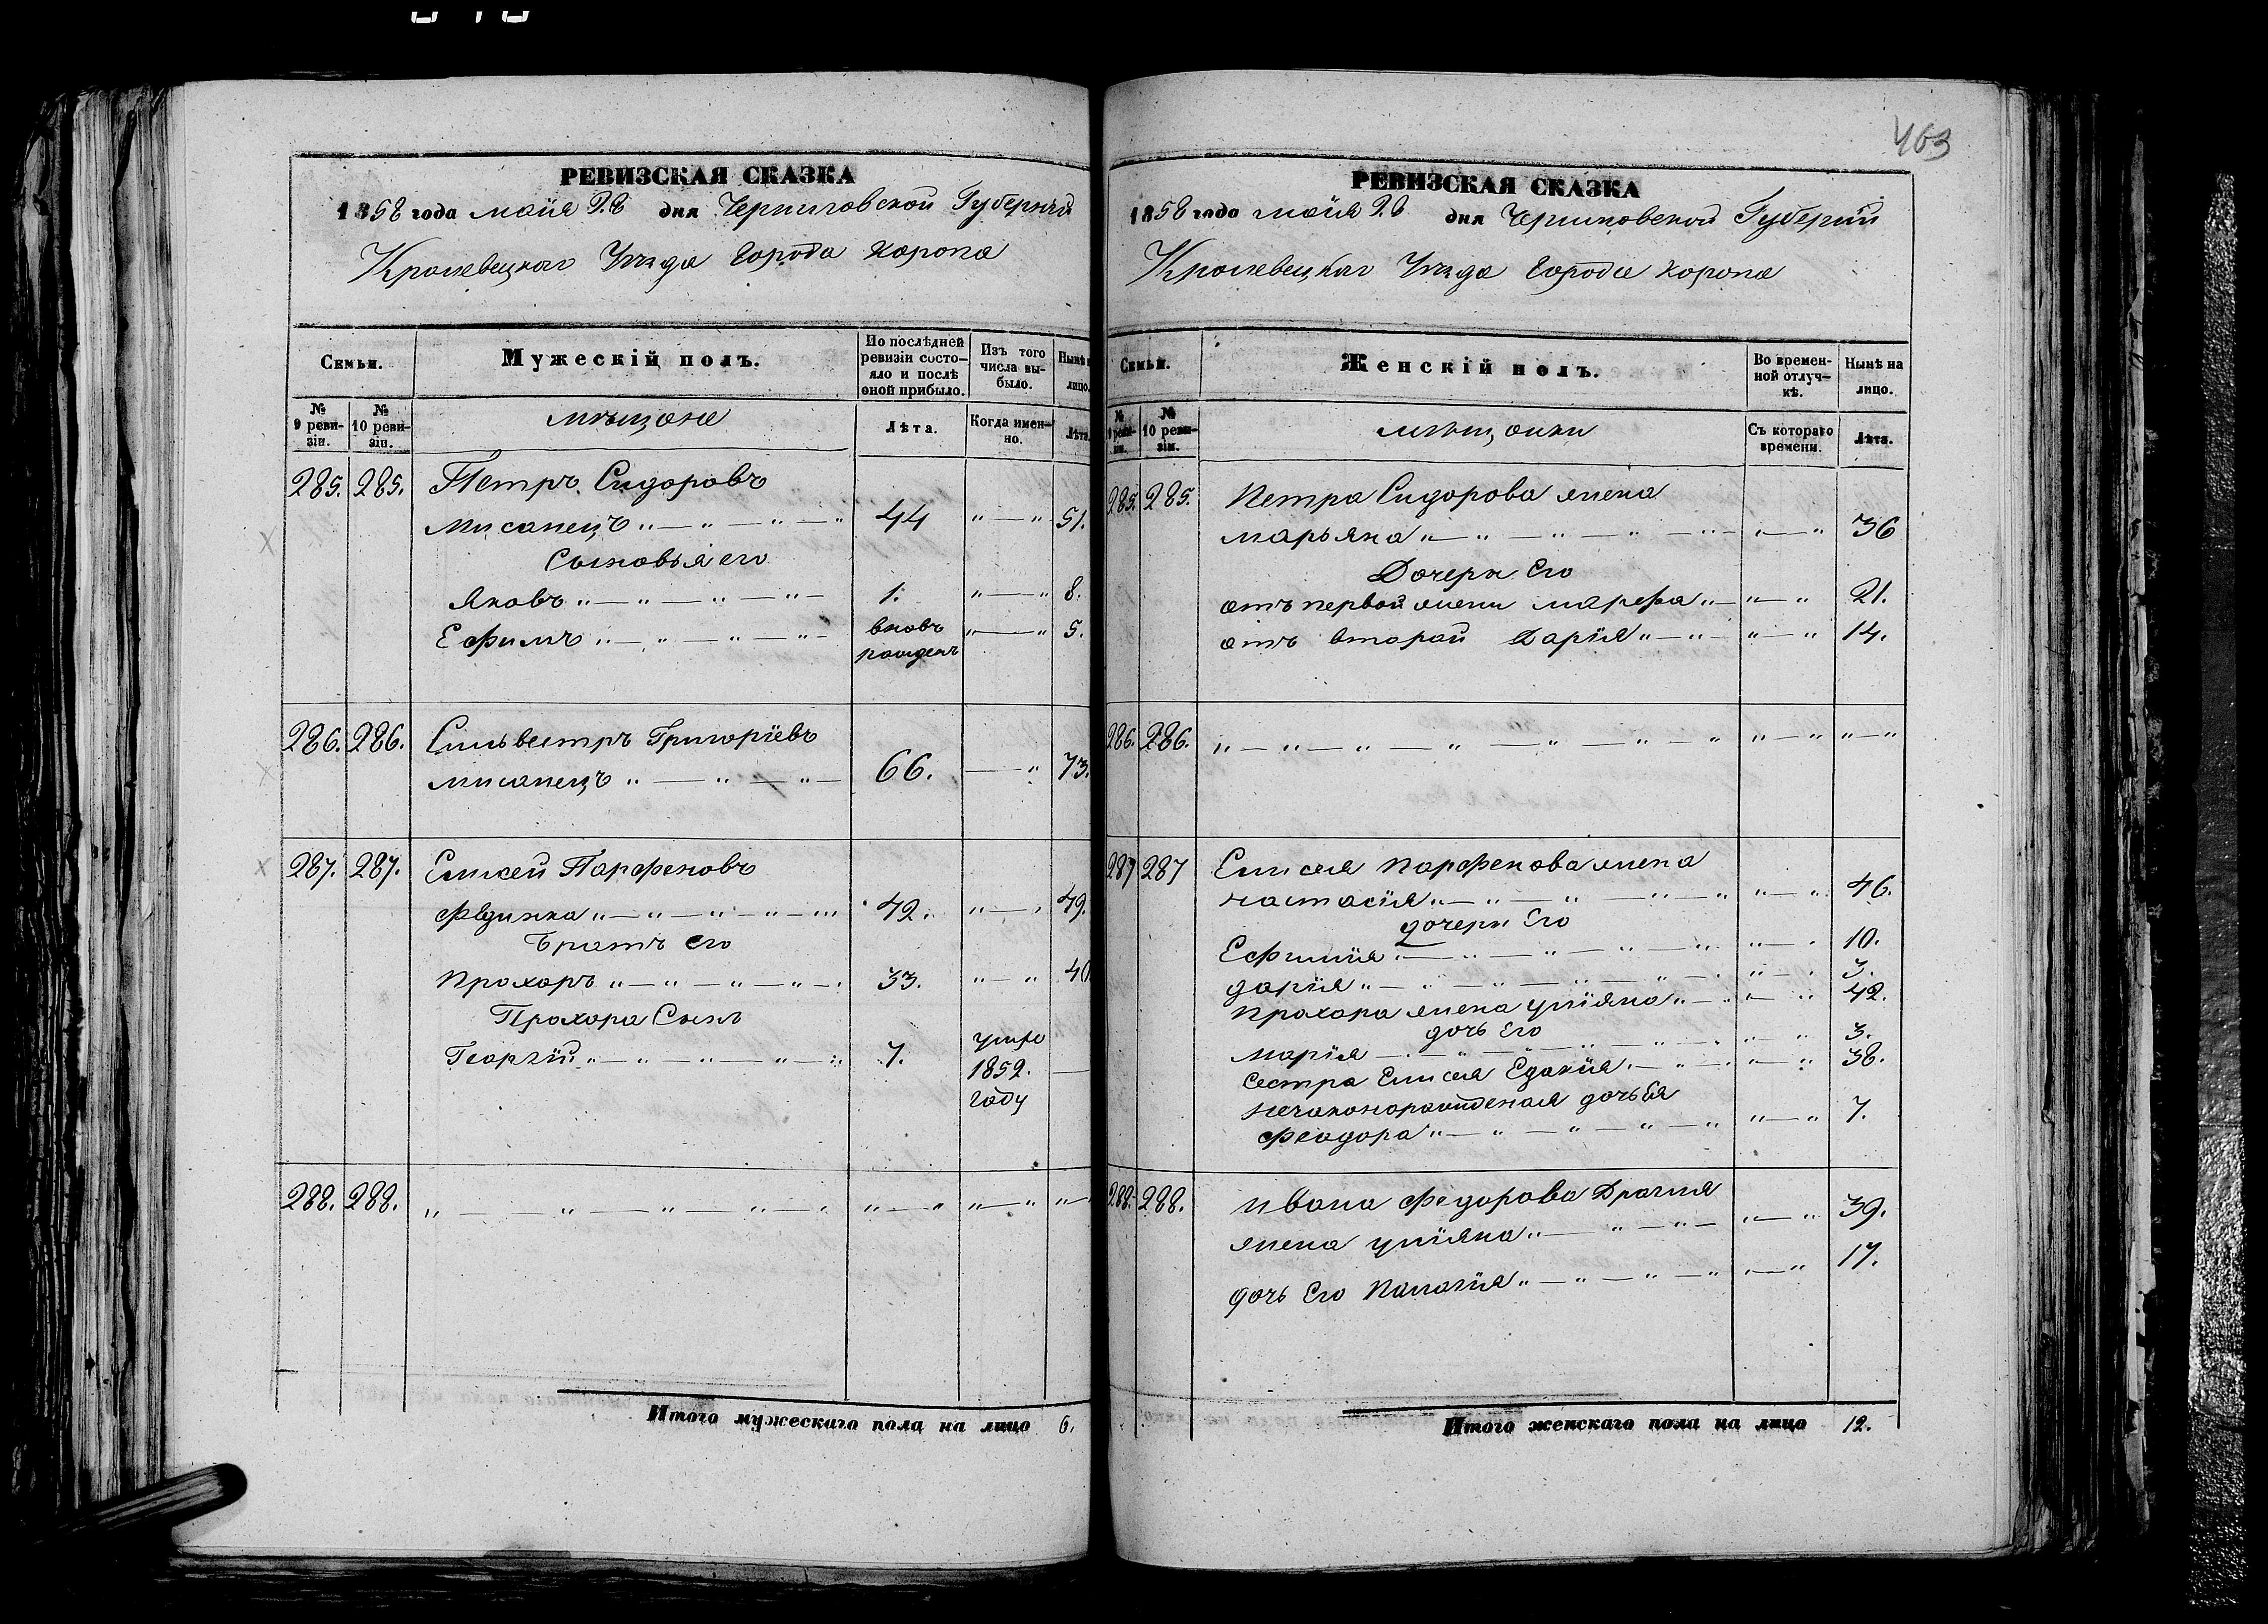 РЕВИЗСКАЯ СКАЗКА
1858 года майя 28 дня Черниговской Губерніи
Кролевецкаго Уѣзда Города Коропа
Семьи.
Мужескій полъ.
По послѣдней ревизіи состояло и послѣ оной прибыло.
Изъ того числа выбыло.
Нынѣ на лицо.
№ 9 ревизіи.
№ 10 ревизіи.
мѣщане
Лѣта.
Когда именно.
Лѣта.
285. 285. Петръ Сидоровъ
Мисанецъ 44 51.
Сыновья его
Яковъ 1. 8.
Ефимъ вновь рожденъ 5.
286. 286. Сильвестръ Григоріевъ
Мисанецъ 66. 73.
287. 287. Елисей Парфеновъ
Фединка 42. 49.
Братъ его
Прохоръ 33. 40
Прохора Сынъ
Георгій 7. умре
1852.
году
288. 288.
Итого мужескаго пола на лицо 6.
463
РЕВИЗСКАЯ СКАЗКА
1858 года майя 28 дня Черниговской Губерніи
Кролевецкаго Уѣзда Города Коропа
Семьи.
Женскій полъ.
Во временной отлучкѣ.
Нынѣ на лицо.
№ 9 ревизіи.
№ 10 ревизіи.
мѣщанки
Съ котораго времени.
Лѣта.
285. 285. Петра Сидорова жена
Марьяна 36
Дочери Его
отъ первой жены Марфа 21.
отъ второй Дарія 14.
286. 286.
287 287 Елисея Парфенова жена
Настасія 46.
дочери Его
Ефимія 10.
Дарія 3.
Прохора жена Уліяна 42.
дочь Его
Марія 3.
Сестра Елисея Едокія 38.
незаконорожденая дочь Ея
Феодора 7.
288. 288. Ивана Федорова Драгия
жена Уліяна 39.
дочь Его Палагія 17.
Итого женскаго пола на лицо 12.